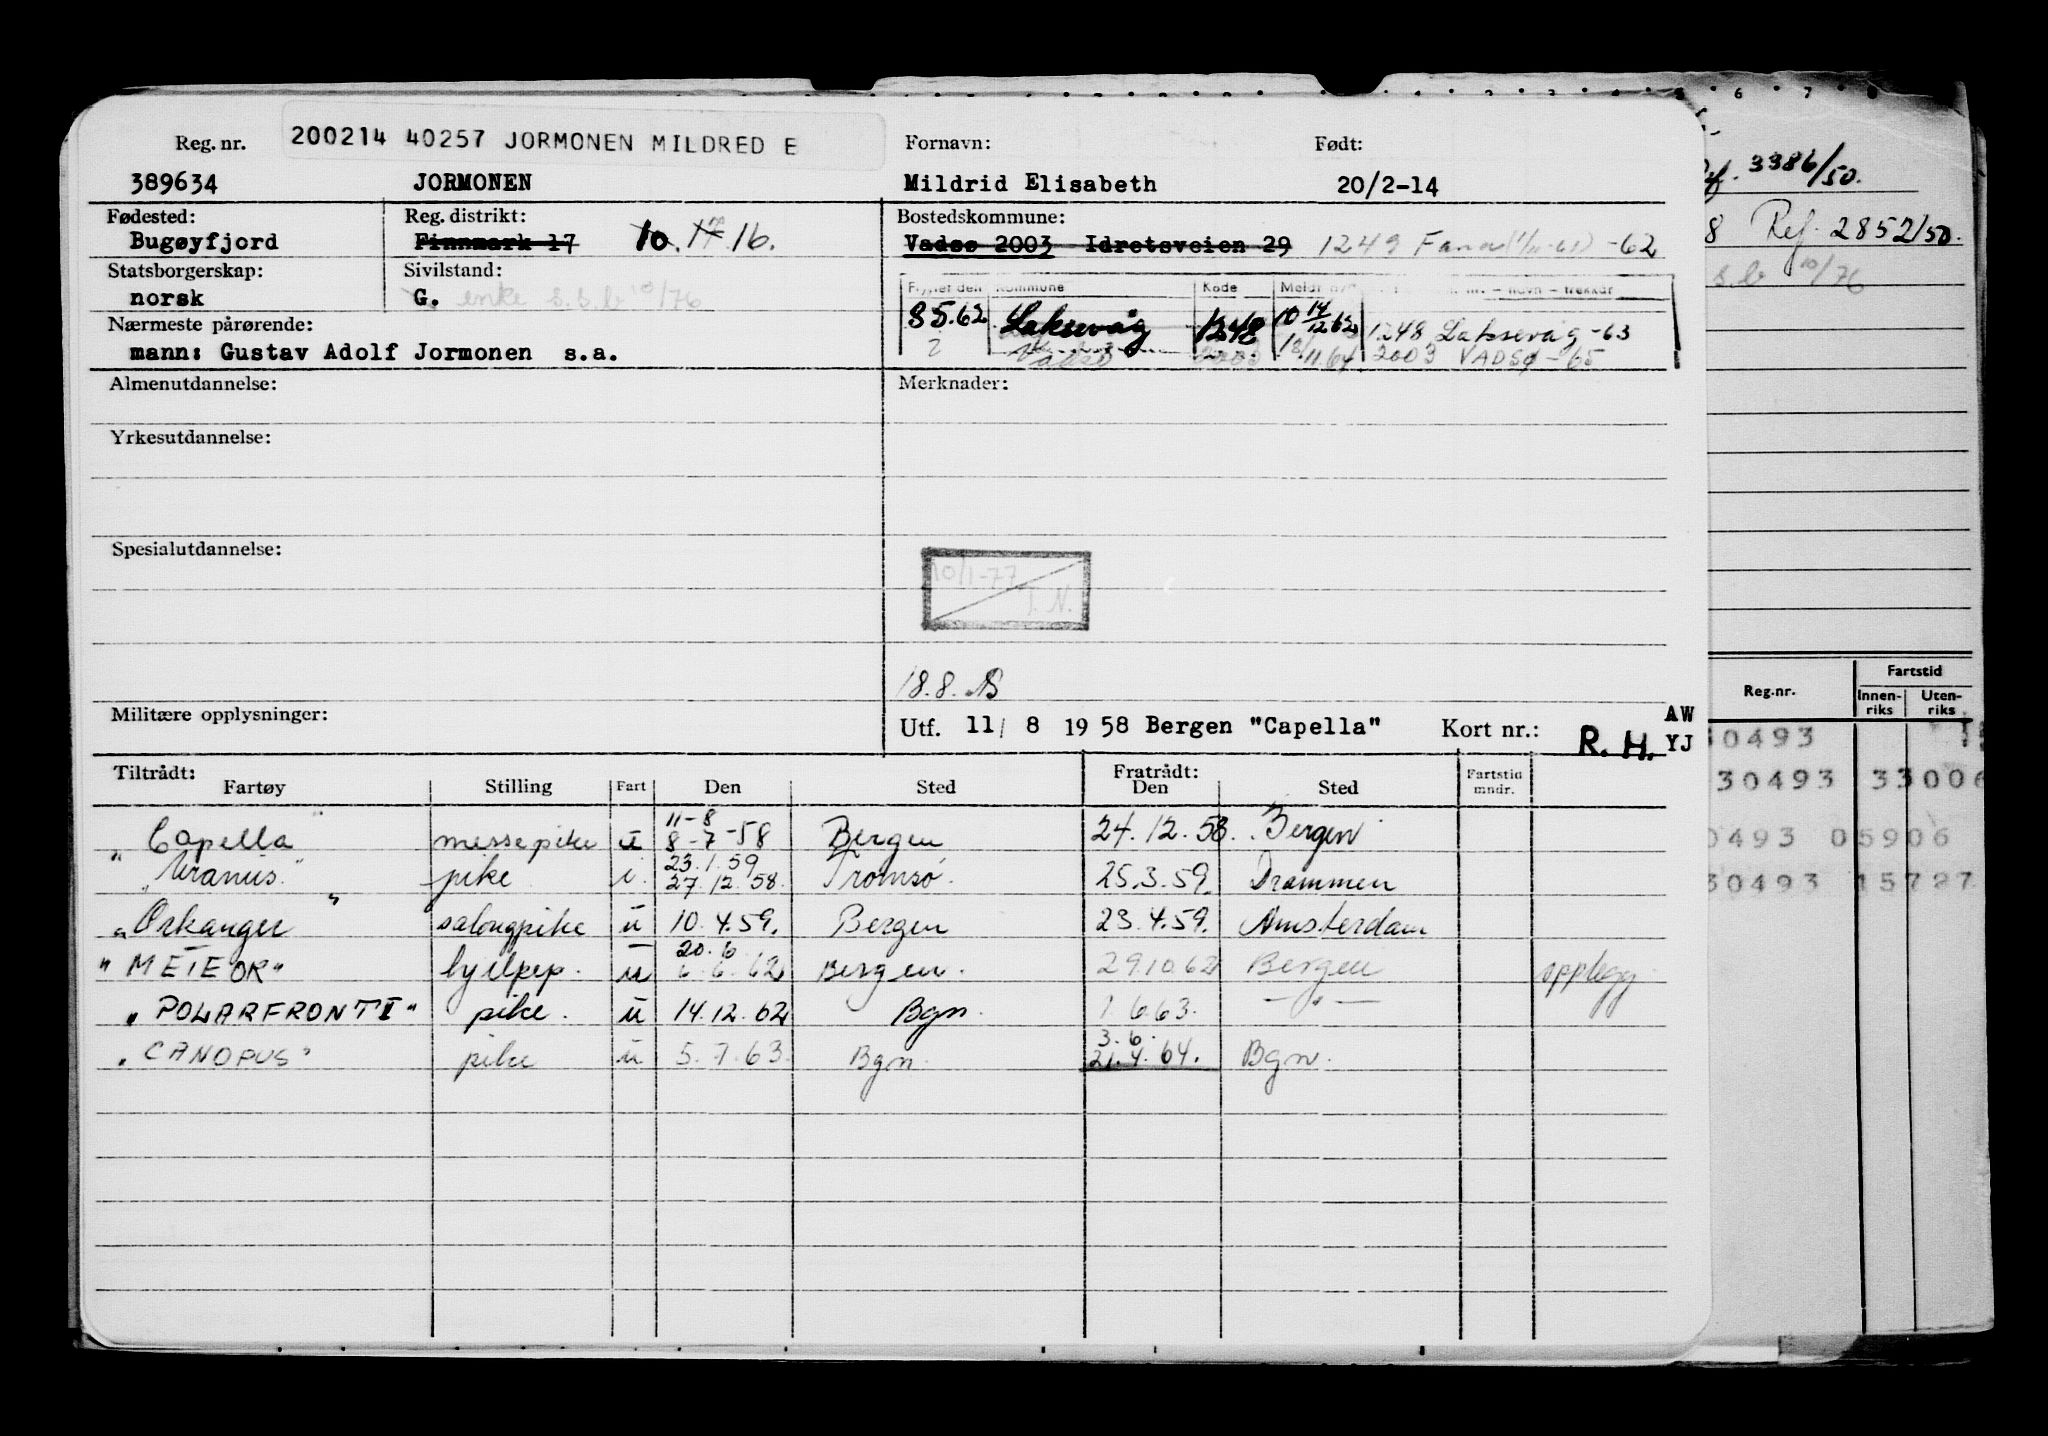 Reg. nr. 200214 40257 JORMONEN MILDRED E Fornavn: Født:
389634 JORMONEN Mildrid Elisabeth 20/2-14
Fødested: Reg. distrikt: Bostedskommune:
Bugøyfjord Finnmark 17 10. 17 16. Vadsø 2003 Idretsveien 29 1249 Fana -62
Statsborgerskap: Sivilstand:
norsk G. enke s.s.b 10/76
Flyttet den Kommune Kode Meldt
8 5.62 Laksevåg 1248 10 14/12 62 1248 Laksevåg -63
? Vadsø 2003 18/11.64 2003 VADSØ -65
Nærmeste pårørende:
mann: Gustav Adolf Jormonen s.a.
Almenutdannelse: Merknader:
Yrkesutdannelse:
Spesialutdannelse:
10/1-77
T. N.
18.8.
Militære opplysninger: Utf. 11/ 8 19 58 Bergen "Capella" Kort nr.: R. H. AW
YJ
Tiltrådt: Fratrådt:
Fartøy Stilling Fart Den Sted Den Sted Fartstid mndr.
11-8
"Capella" messepike u 8-7-58 Bergen 24.12.58. Bergen
23.1.59
"Uranus" pike i 27.12.58. Tromsø. 25.3.59. Drammen
"Orkanger" salongpike u 10.4.59. Bergen 23.4.59. Amsterdam
20.6
"METEOR" hjelpep. u 6.6.62 Bergen. 29.10.62 Bergen opplegg
"POLARFRONT I" pike. u 14.12.62 Bgn. 1.6.63. — " —
3.6.
"CANOPUS" pike u 5.7.63. Bgn. 21.4.64. Bgn.
Ref. 3386/50.
8 Ref. 2852/50.
s.b 10/76
Reg.nr. Fartstid
Innen-riks Uten-riks
30493
30493 33006
0493 05906
30493 15727